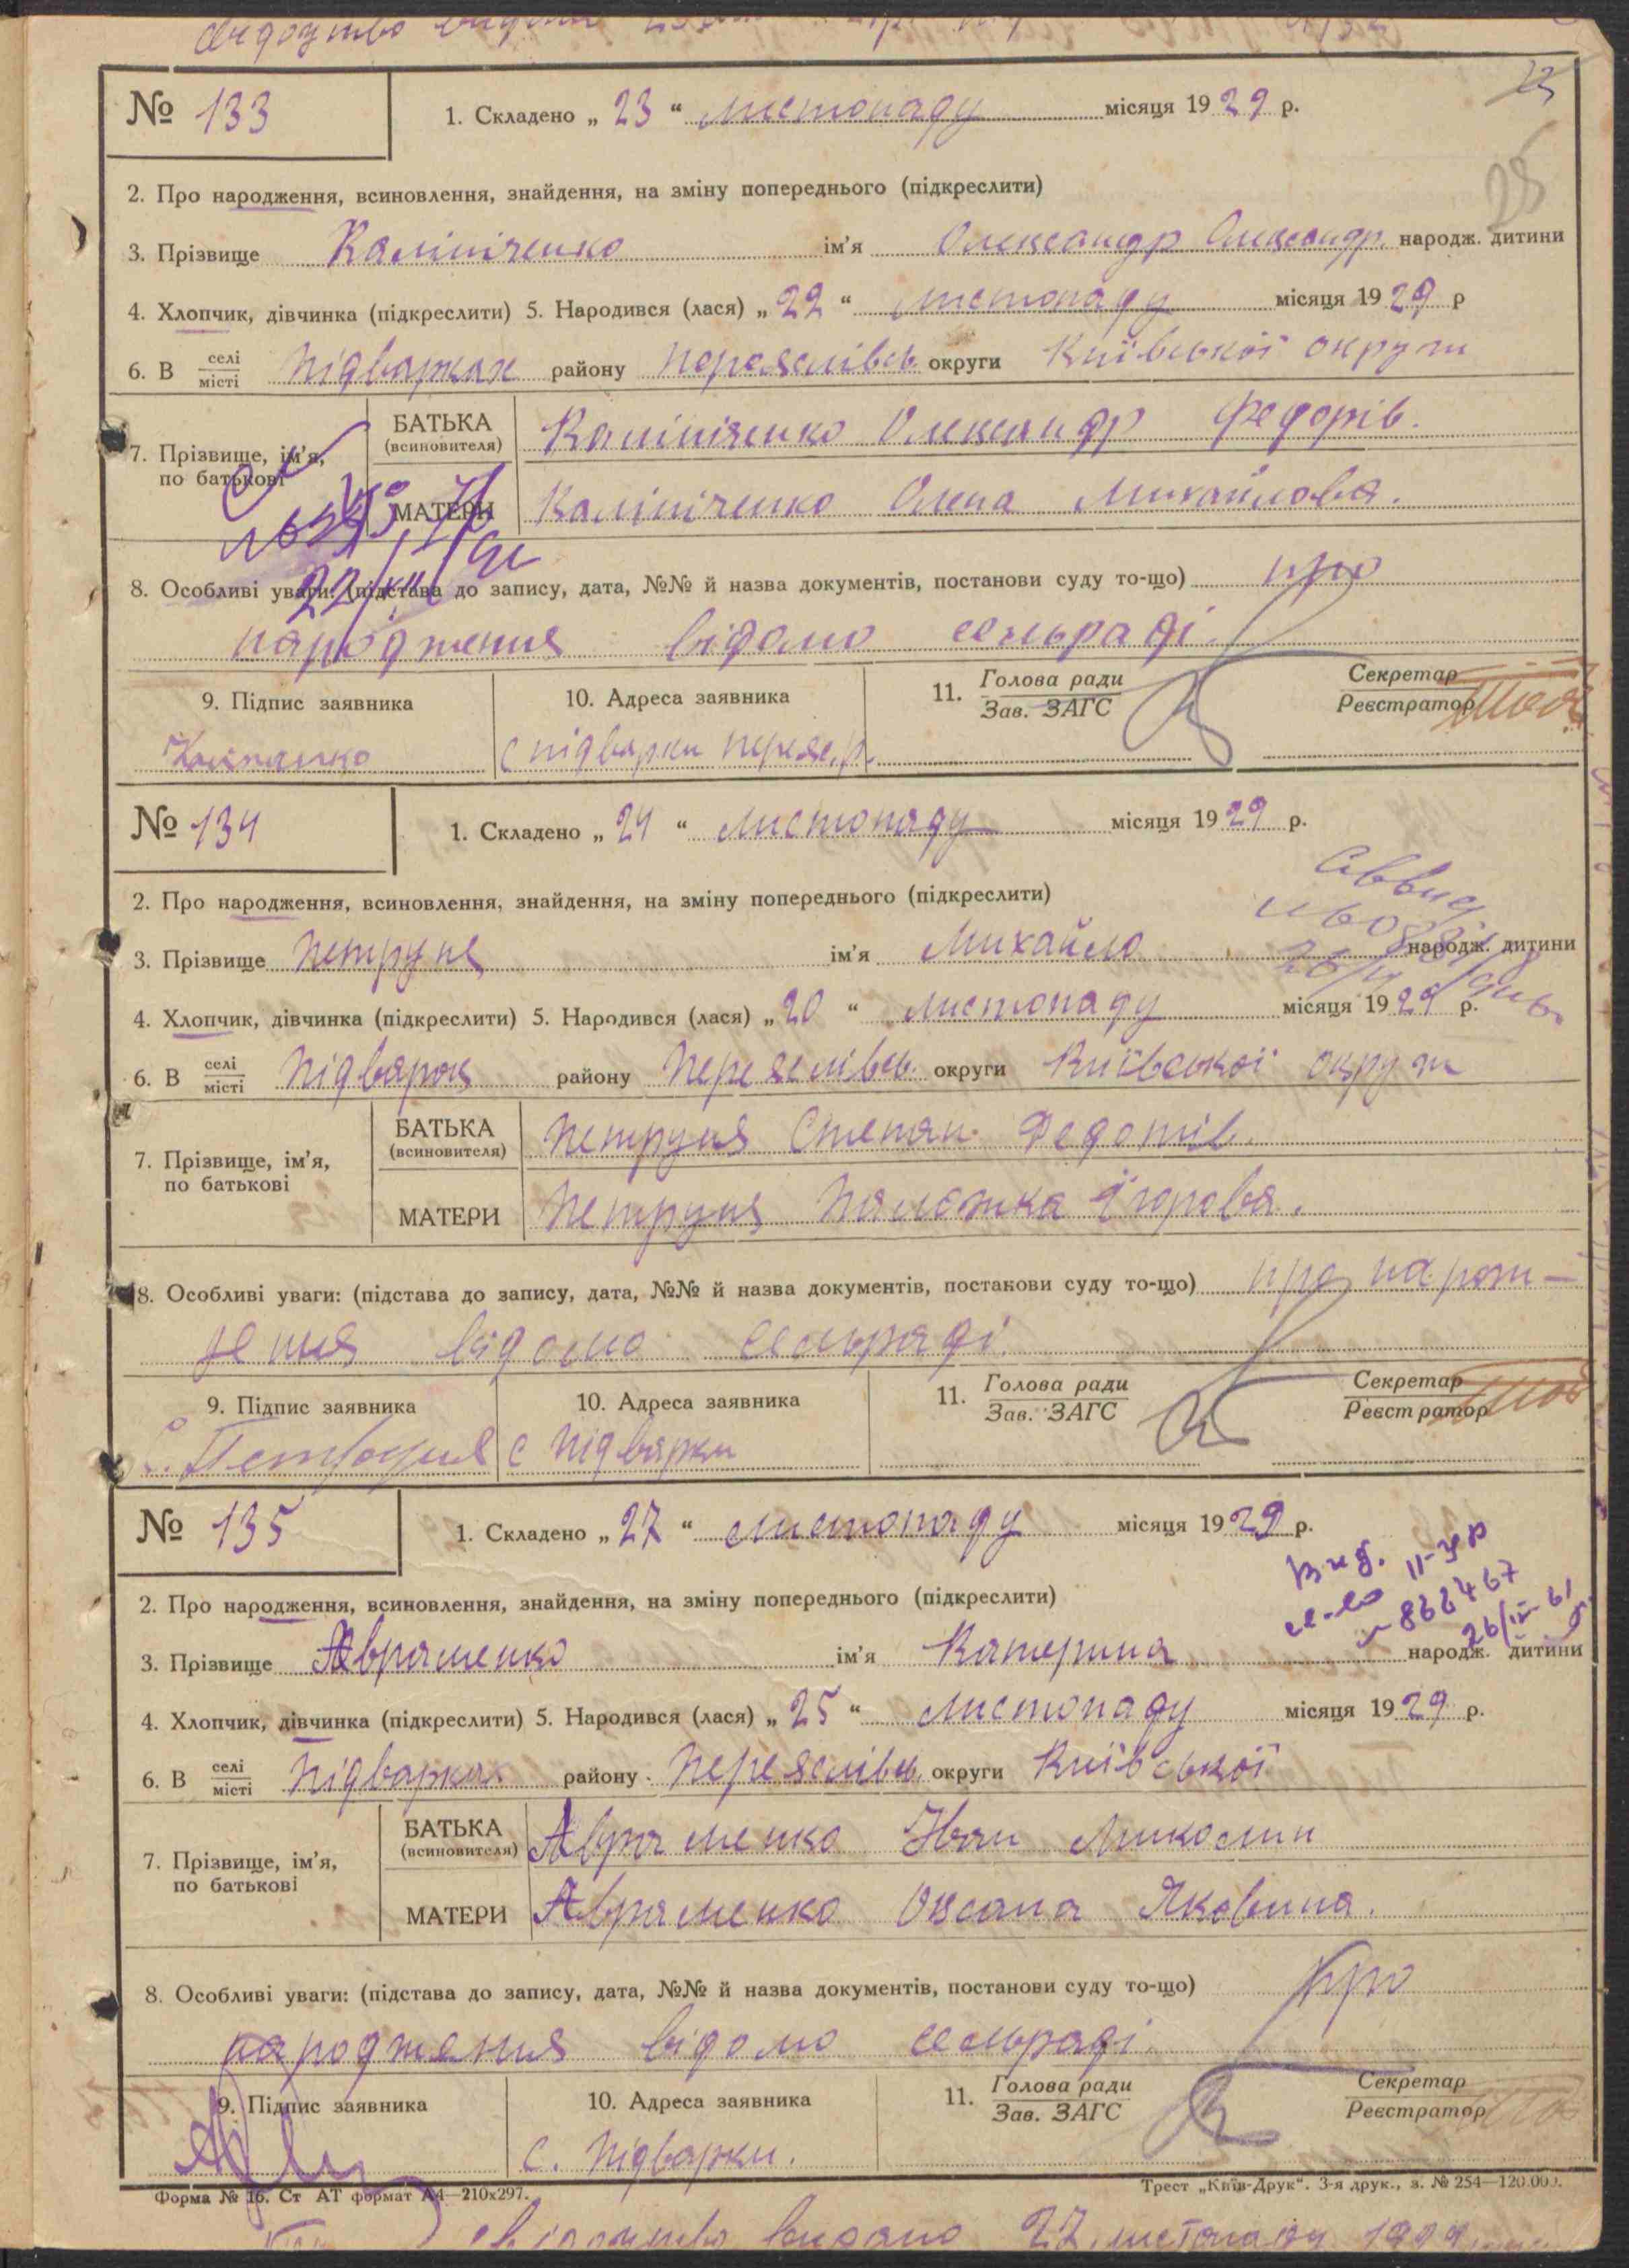 № 133
1. Складено „ 23 “ листопаду місяця 1929 р.
25
2. Про народження, всиновлення, знайдення, на зміну попереднього (підкреслити)
3. Прізвище Калініченко ім’я Олександр Олександр. народж. дитини
4. Хлопчик, дівчинка (підкреслити) 5. Народився (лася) „ 22 “ листопаду місяця 1929 р
6. В селі місті Підварках району Переяслівсь округи Київської округи
7. Прізвище, ім’я, по батькові
БАТЬКА (всиновителя) Калініченко Олександр Федорів.
МАТЕРИ Калініченко Олена Михайлова.
8. Особливі уваги: (підстава до запису, дата, №№ й назва документів, постанови суду то-що) про
народження відомо сельраді.
9. Підпис заявника
10. Адреса заявника
11. Голова ради Зав. ЗАГС
Секретар Реєстратор
с підварки
№ 134
1. Складено „ 24 “ листопаду місяця 1929 р.
2. Про народження, всиновлення, знайдення, на зміну попереднього (підкреслити)
3. Прізвище Петруня ім’я Михайло народж. дитини
4. Хлопчик, дівчинка (підкреслити) 5. Народився (лася) „ 20 “ листопаду місяця 1929 р.
6. В селі місті Підварок району Переяслівсь. округи Київської округи
7. Прізвище, ім’я, по батькові
БАТЬКА (всиновителя) Петруня Степан Федотів.
МАТЕРИ Петруня
8. Особливі уваги: (підстава до запису, дата, №№ й назва документів, постанови суду то-що) про нарож-
дення відомо сельраді.
9. Підпис заявника
10. Адреса заявника
11. Голова ради Зав. ЗАГС
Секретар Реєстратор
Петруня с Підварки
№ 135
1. Складено „ 27 “ листопаду місяця 1929 р.
2. Про народження, всиновлення, знайдення, на зміну попереднього (підкреслити)
3. Прізвище Авраменко ім’я Катерина народж. дитини
4. Хлопчик, дівчинка (підкреслити) 5. Народився (лася) „ 25 “ листопаду місяця 1929 р.
6. В селі місті Підварках району Переяслівсь. округи Київської
7. Прізвище, ім’я, по батькові
БАТЬКА (всиновителя) Авраменко Іван Миколин
МАТЕРИ Авраменко Оксана Яковина.
8. Особливі уваги: (підстава до запису, дата, №№ й назва документів, постанови суду то-що) про
народження відомо сельраді.
9. Підпис заявника
10. Адреса заявника
11. Голова ради Зав. ЗАГС
Секретар Реєстратор
с. Підварки.
Форма № 16. Ст АТ формат А4—210х297.
Трест „Київ-Друк“. 3-я друк., з. № 254—120.000.
видано 27 листопаду 1929